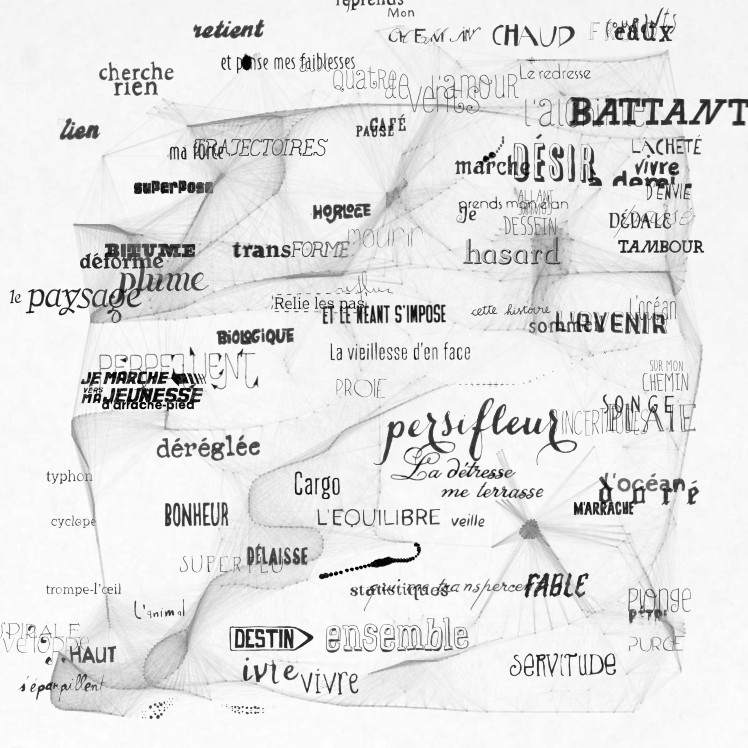 reprends
Mon
retient
CHEMIN
CHAUD
eaux
et panse mes faiblesses
cherche
rien
Quatre
vents
l'amour
Le redresse
BATTANT
lien
PAUSE
CAFÉ
ma force
TRAJECTOIRES
LÂCHETÉ
marche
DÉSIR
vivre
à demi
superpose
D'ENVIE
ALLANT
prends mon élan
Je
DESSEIN
HORLOGE
DÉDALE
mourir
BITUME
déforme
transFORME
hasard
TAMBOUR
plume
le paysage
Relie les pas
ET LE NÉANT S'IMPOSE
cette histoire
sommes
L'AVENIR
L'océan
BiOLOGiQUE
La vieillesse d'en face
PERPETUENT
JE MARCHE
VERS
MA JEUNESSE
d'arrache-pied
PROIE
SUR MON
CHEMIN
SONGE
persifleur
INCERTITUDES
déréglée
La détresse
me terrasse
typhon
Cargo
l'océan
doré
M'ARRACHE
cyclope
BONHEUR
L'EQUILIBRE
veille
SUPERFLU
DÉLAISSE
trompe-l'œil
statistiques
qui me transperce
FABLE
L'animal
plonge
SPIRALE
DESTIN
ensemble
PURGE
HAUT
ivre
vivre
SERVITUDE
s'éparpillent